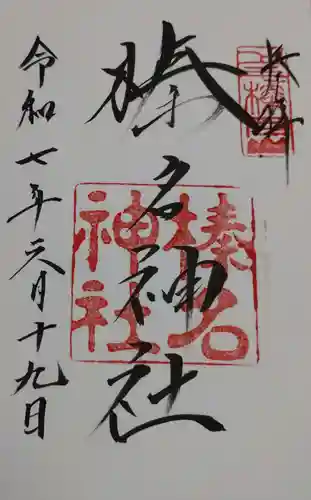 榛名神社
榛名
神社
令和七年 月十九日